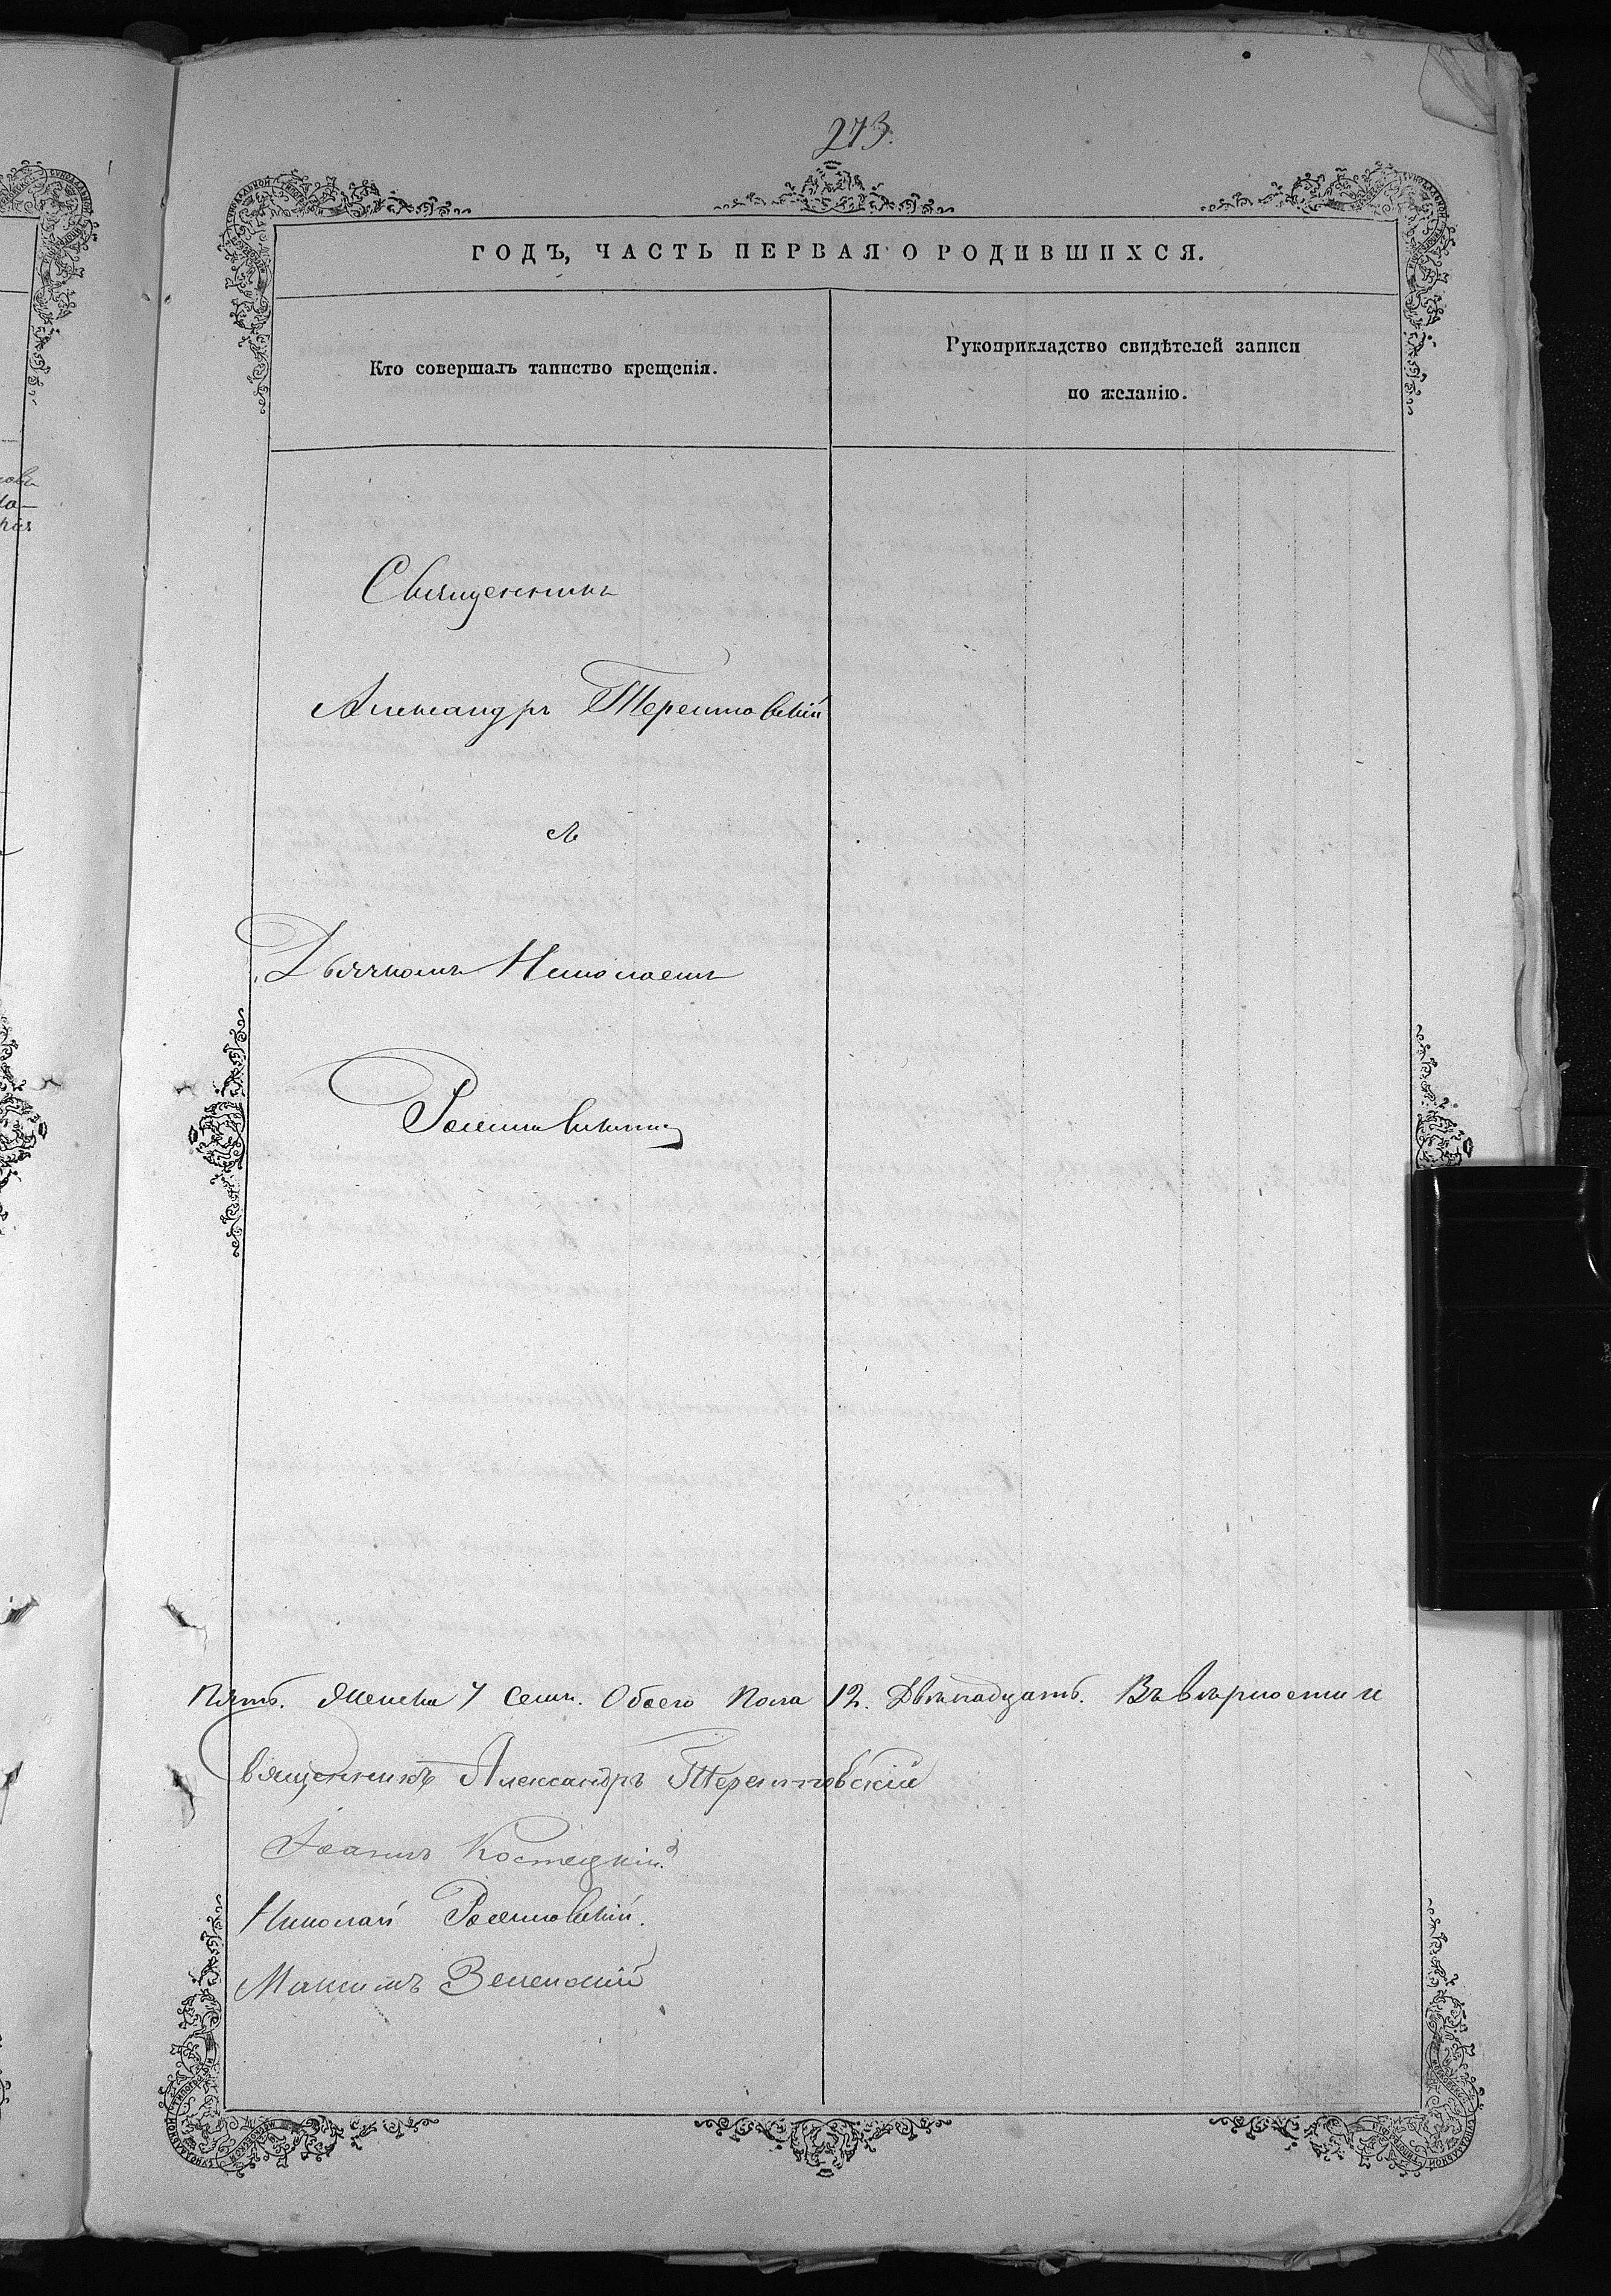 273.
ГОДЪ, ЧАСТЬ ПЕРВАЯ О РОДИВШИХСЯ.
Кто совершалъ таинство крещенія.
Рукоприкладство свидѣтелей записи
по желанію.
Священникъ
Александръ
съ
Дьячкомъ Николаемъ
Пять. Женска 7 Семь. Обоего Пола 12. Двѣнадцать. Въ вѣрности и
Священникъ Александръ
Іоаннъ Костецкій
Николай
Максимъ Зеленскій